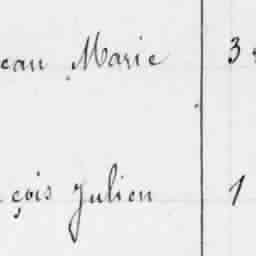 ean Marie 3
çois Julien 1